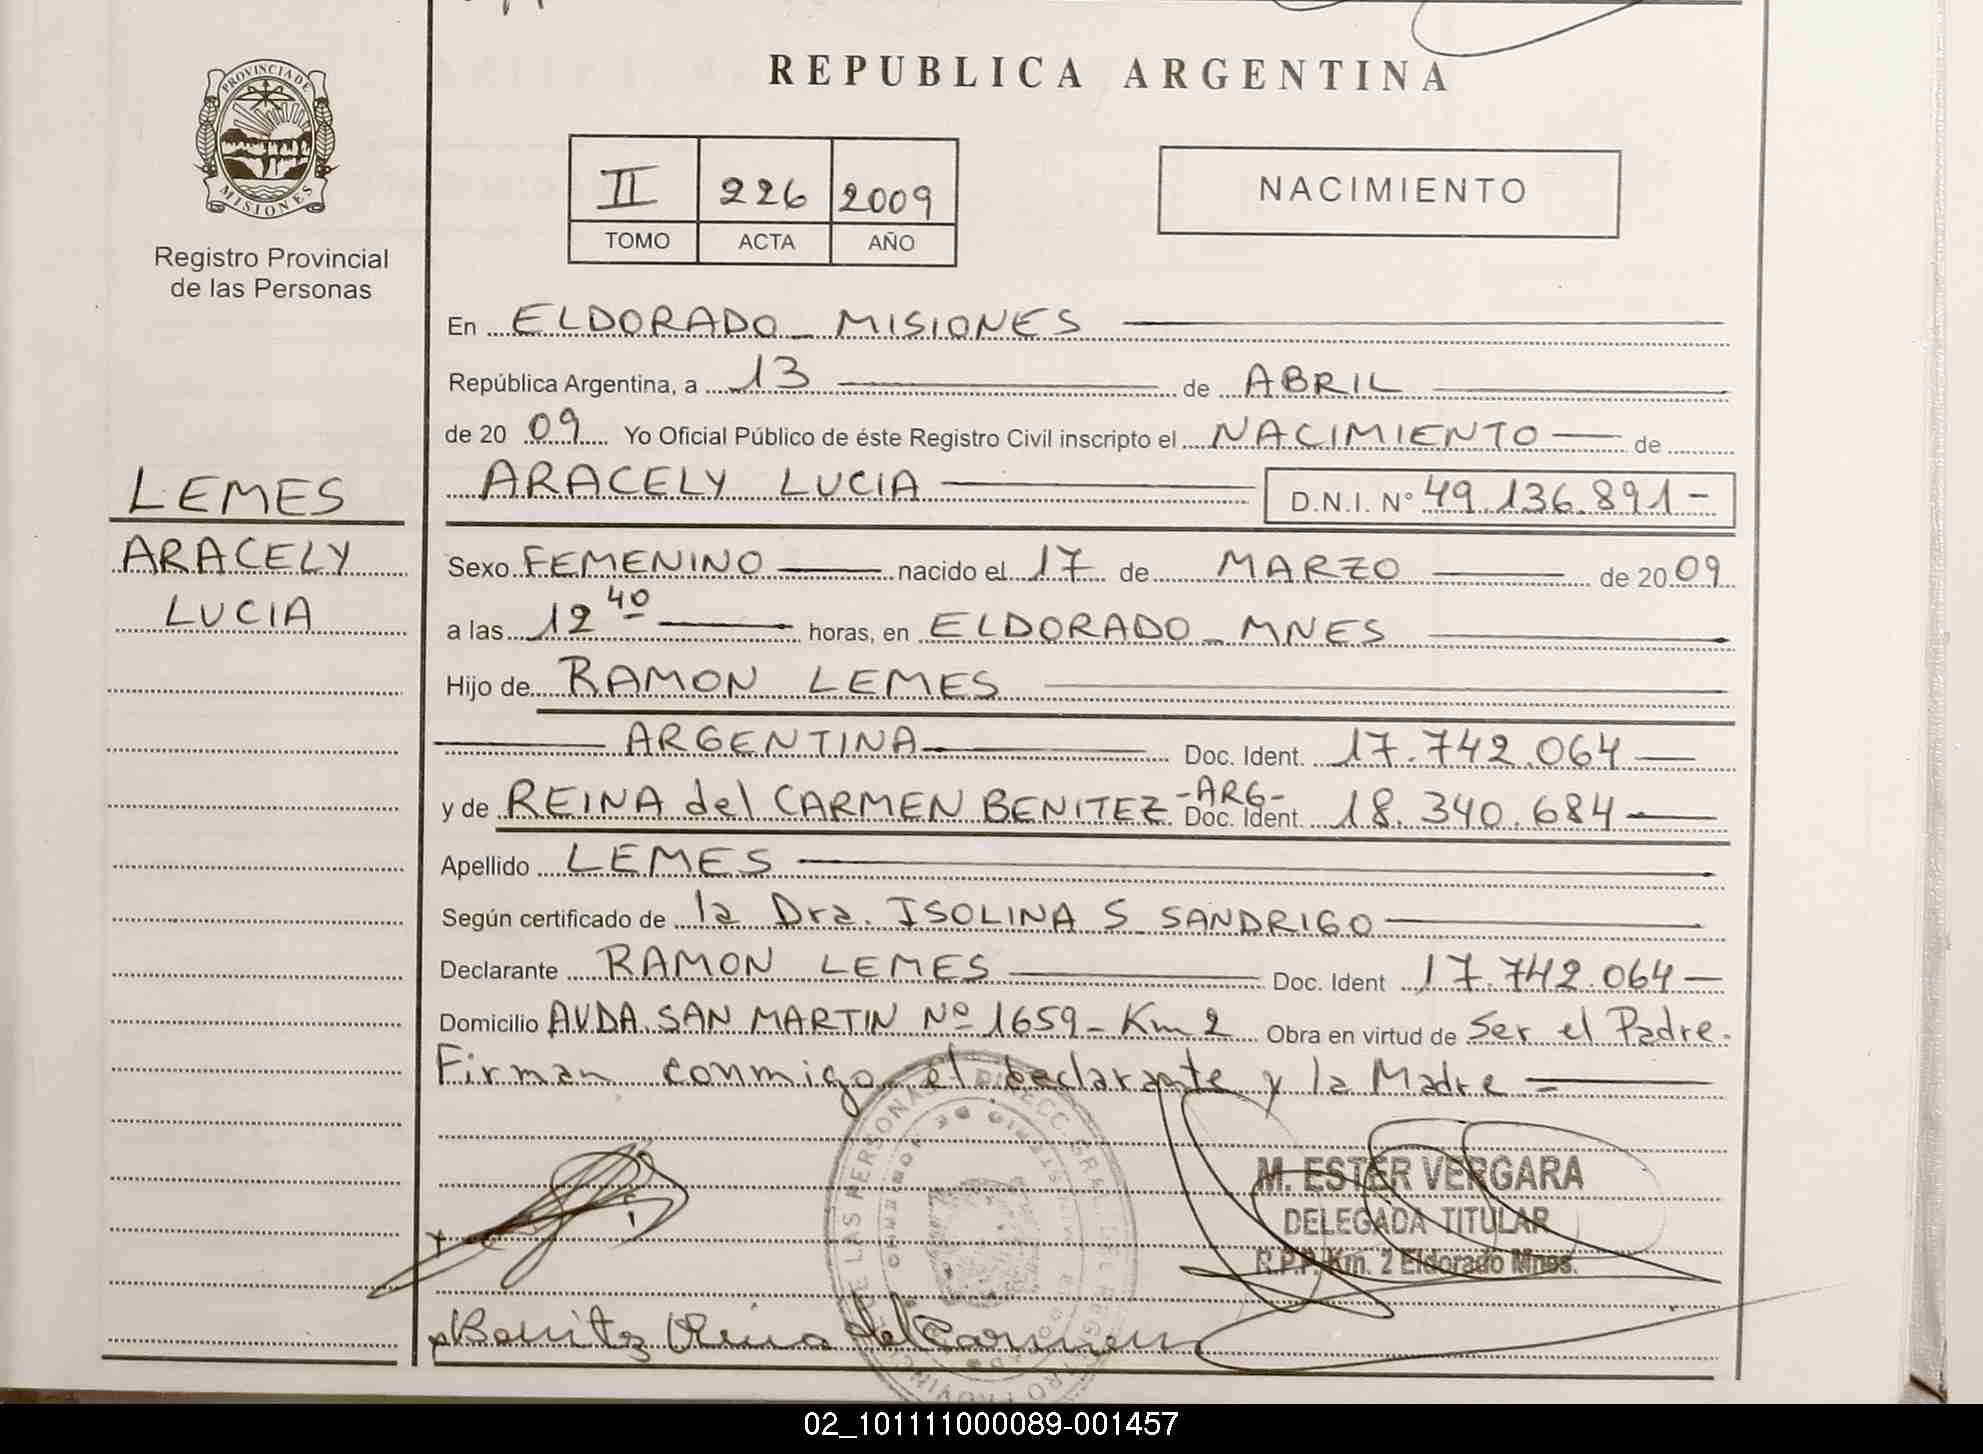 REPUBLICA ARGENTINA
PROVINCIA DE
MISIONES
Registro Provincial
de las Personas
II 226 2009
TOMO ACTA AÑO
NACIMIENTO
LEMES
ARACELY
LUCIA
En ELDORADO - MISIONES
República Argentina, a 13 de ABRIL
de 20 09 Yo Oficial Público de éste Registro Civil inscripto el NACIMIENTO de
ARACELY LUCIA D.N.I. N° 49.136.891-
Sexo FEMENINO nacido el 17 de MARZO de 20 09
a las 12 40 horas, en ELDORADO - MNES
Hijo de RAMON LEMES
ARGENTINA Doc. Ident. 17.742.064
y de REINA del CARMEN BENITEZ -ARG- Doc. Ident. 18.340.684
Apellido LEMES
Según certificado de la Dra. ISOLINA S. SANDRIGO
Declarante RAMON LEMES Doc. Ident 17.742.064
Domicilio AVDA. SAN MARTIN Nº 1659 - Km 2 Obra en virtud de Ser el Padre.
Firman conmigo el declarante y la Madre =
M. ESTER VERGARA
DELEGADA TITULAR
R.P.P. Km. 2 Eldorado Mnes.
Benitez Reina del Carmen
02_101111000089-001457